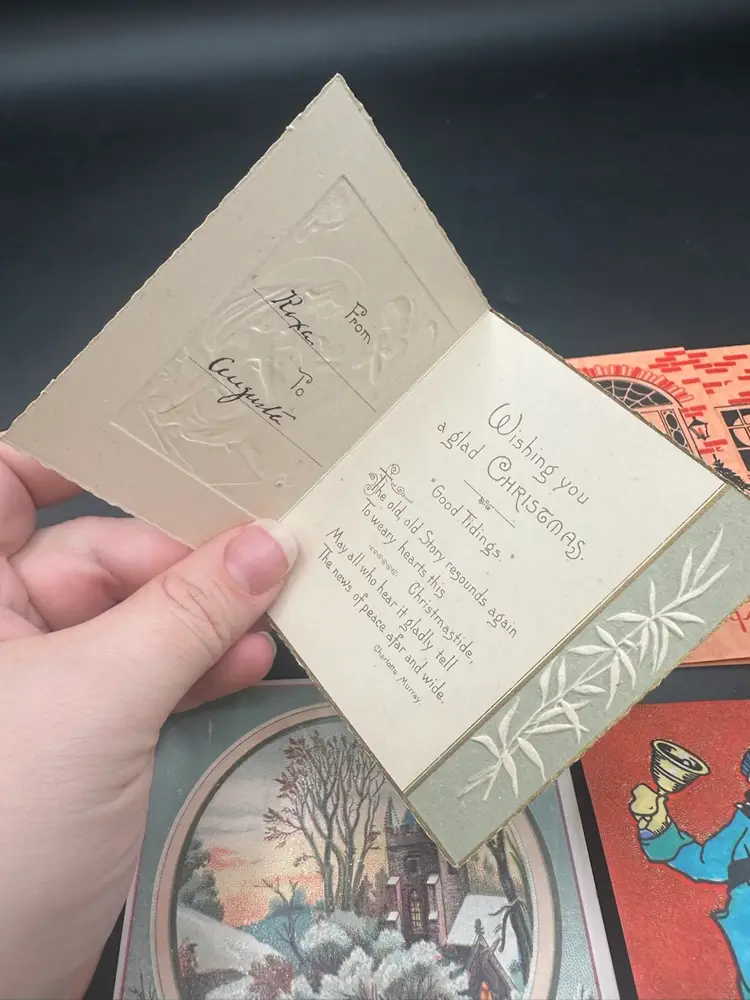 From
Roxa.
To
Augusta
Wishing you
a glad CHRISTMAS.
"Good Tidings."
The old, old Story resounds again
To weary hearts this
Christmastide,
May all who hear it gladly tell
The news of peace afar and wide.
Charlotte Murray.